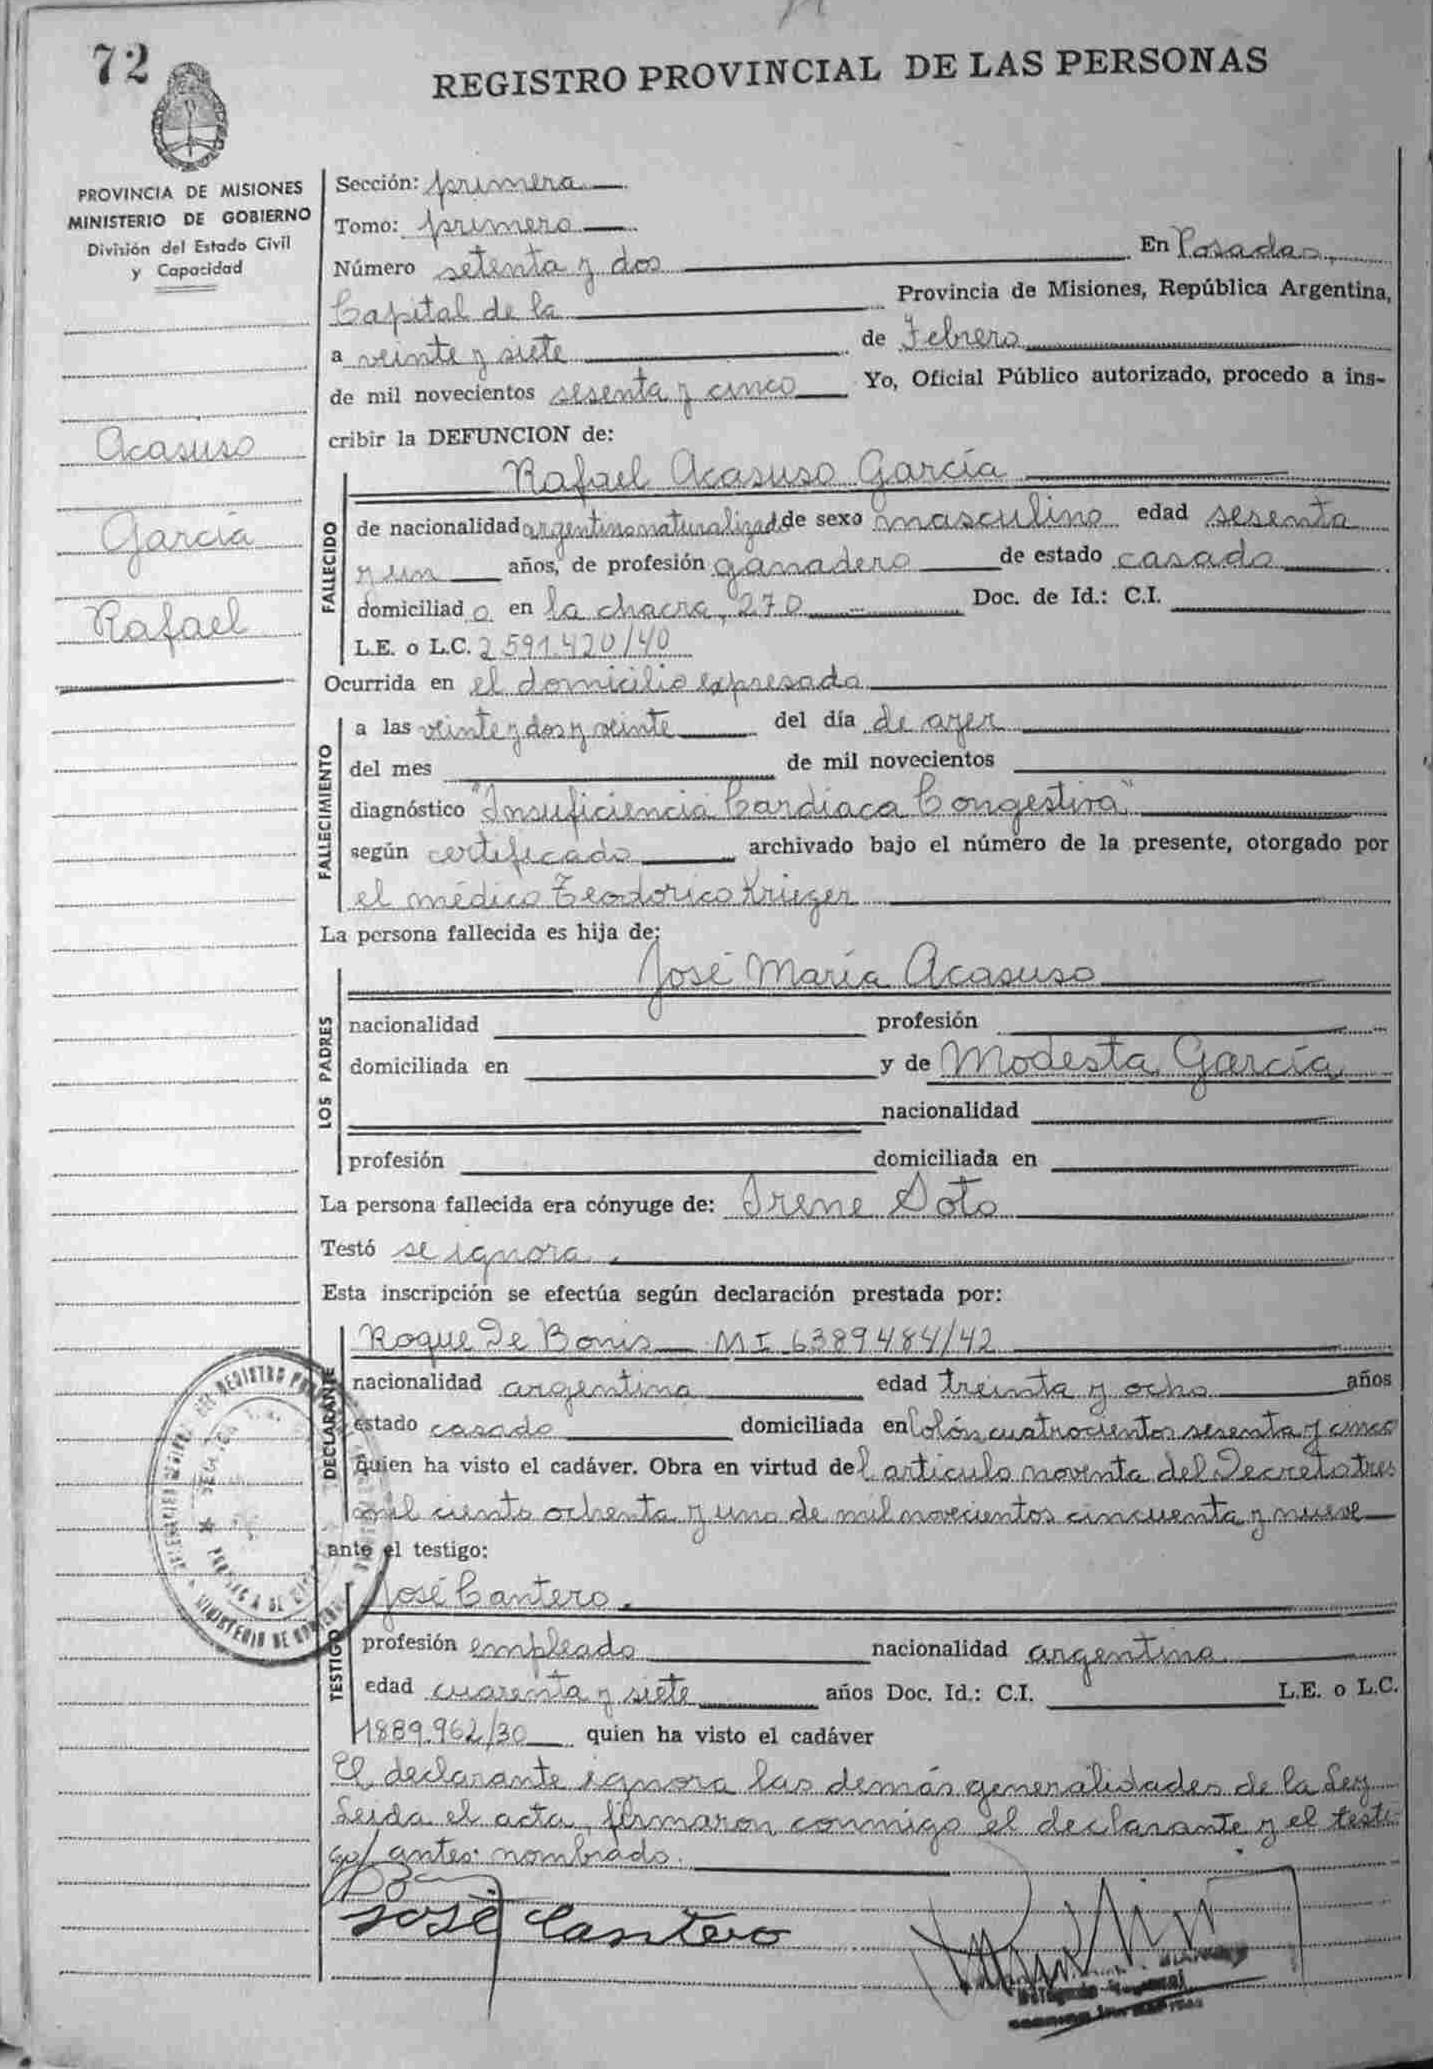 72
REGISTRO PROVINCIAL DE LAS PERSONAS
PROVINCIA DE MISIONES
MINISTERIO DE GOBIERNO
División del Estado Civil
y Capacidad
Acasuso
García
Rafael
Sección: primera
Tomo: primero
Número setenta y dos En Posadas,
Capital de la Provincia de Misiones, República Argentina,
a veinte y siete de Febrero
de mil novecientos sesenta y cinco Yo, Oficial Público autorizado, procedo a ins-
cribir la DEFUNCION de:
Rafael Acasuso García
FALLECIDO
de nacionalidad argentino naturalizado de sexo masculino edad sesenta
y un años, de profesión ganadero de estado casado
domiciliado en la chacra, 270 Doc. de Id.: C.I.
L.E. o L.C. 2591.420/40
Ocurrida en el domicilio expresado
FALLECIMIENTO
a las veinte y dos y veinte del día de ayer
del mes de mil novecientos
diagnóstico "Insuficiencia Cardíaca Congestiva"
según certificado archivado bajo el número de la presente, otorgado por
el médico Teodorico Krieger
La persona fallecida es hija de:
José María Acasuso
LOS PADRES
nacionalidad profesión
domiciliada en y de Modesta García
nacionalidad
profesión domiciliada en
La persona fallecida era cónyuge de: Irene Soto
Testó se ignora.
Esta inscripción se efectúa según declaración prestada por:
Roque De Bonis MI 6389484/42
DECLARANTE
nacionalidad argentina edad treinta y ocho años
estado casado domiciliada en Colón cuatrocientos sesenta y cinco
quien ha visto el cadáver. Obra en virtud del artículo noventa del Decreto tres
mil ciento ochenta y uno de mil novecientos cincuenta y nueve
ante el testigo:
José Cantero.
TESTIGO
profesión empleado nacionalidad argentina
edad cuarenta y siete años Doc. Id.: C.I. L.E. o L.C.
1889.962/30 quien ha visto el cadáver
El declarante ignora las demás generalidades de la Ley
Leida el acta, firmaron conmigo el declarante y el testi-
go/ antes nombrado.
José Cantero